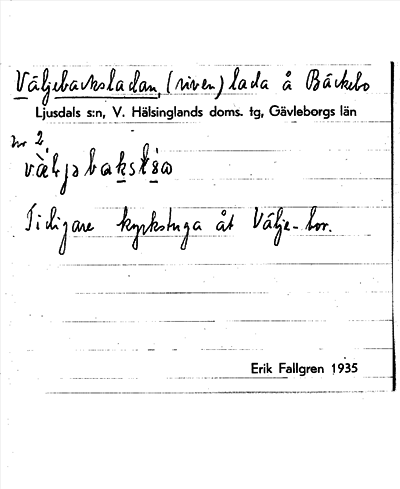 Väljebacksladan, (riven) lada å Bäckebo
Ljusdals s:n, V. Hälsinglands doms. tg, Gävleborgs län
nr 2.
Tidigare kyrkstuga åt Välje-bor.
Erik Fallgren 1935